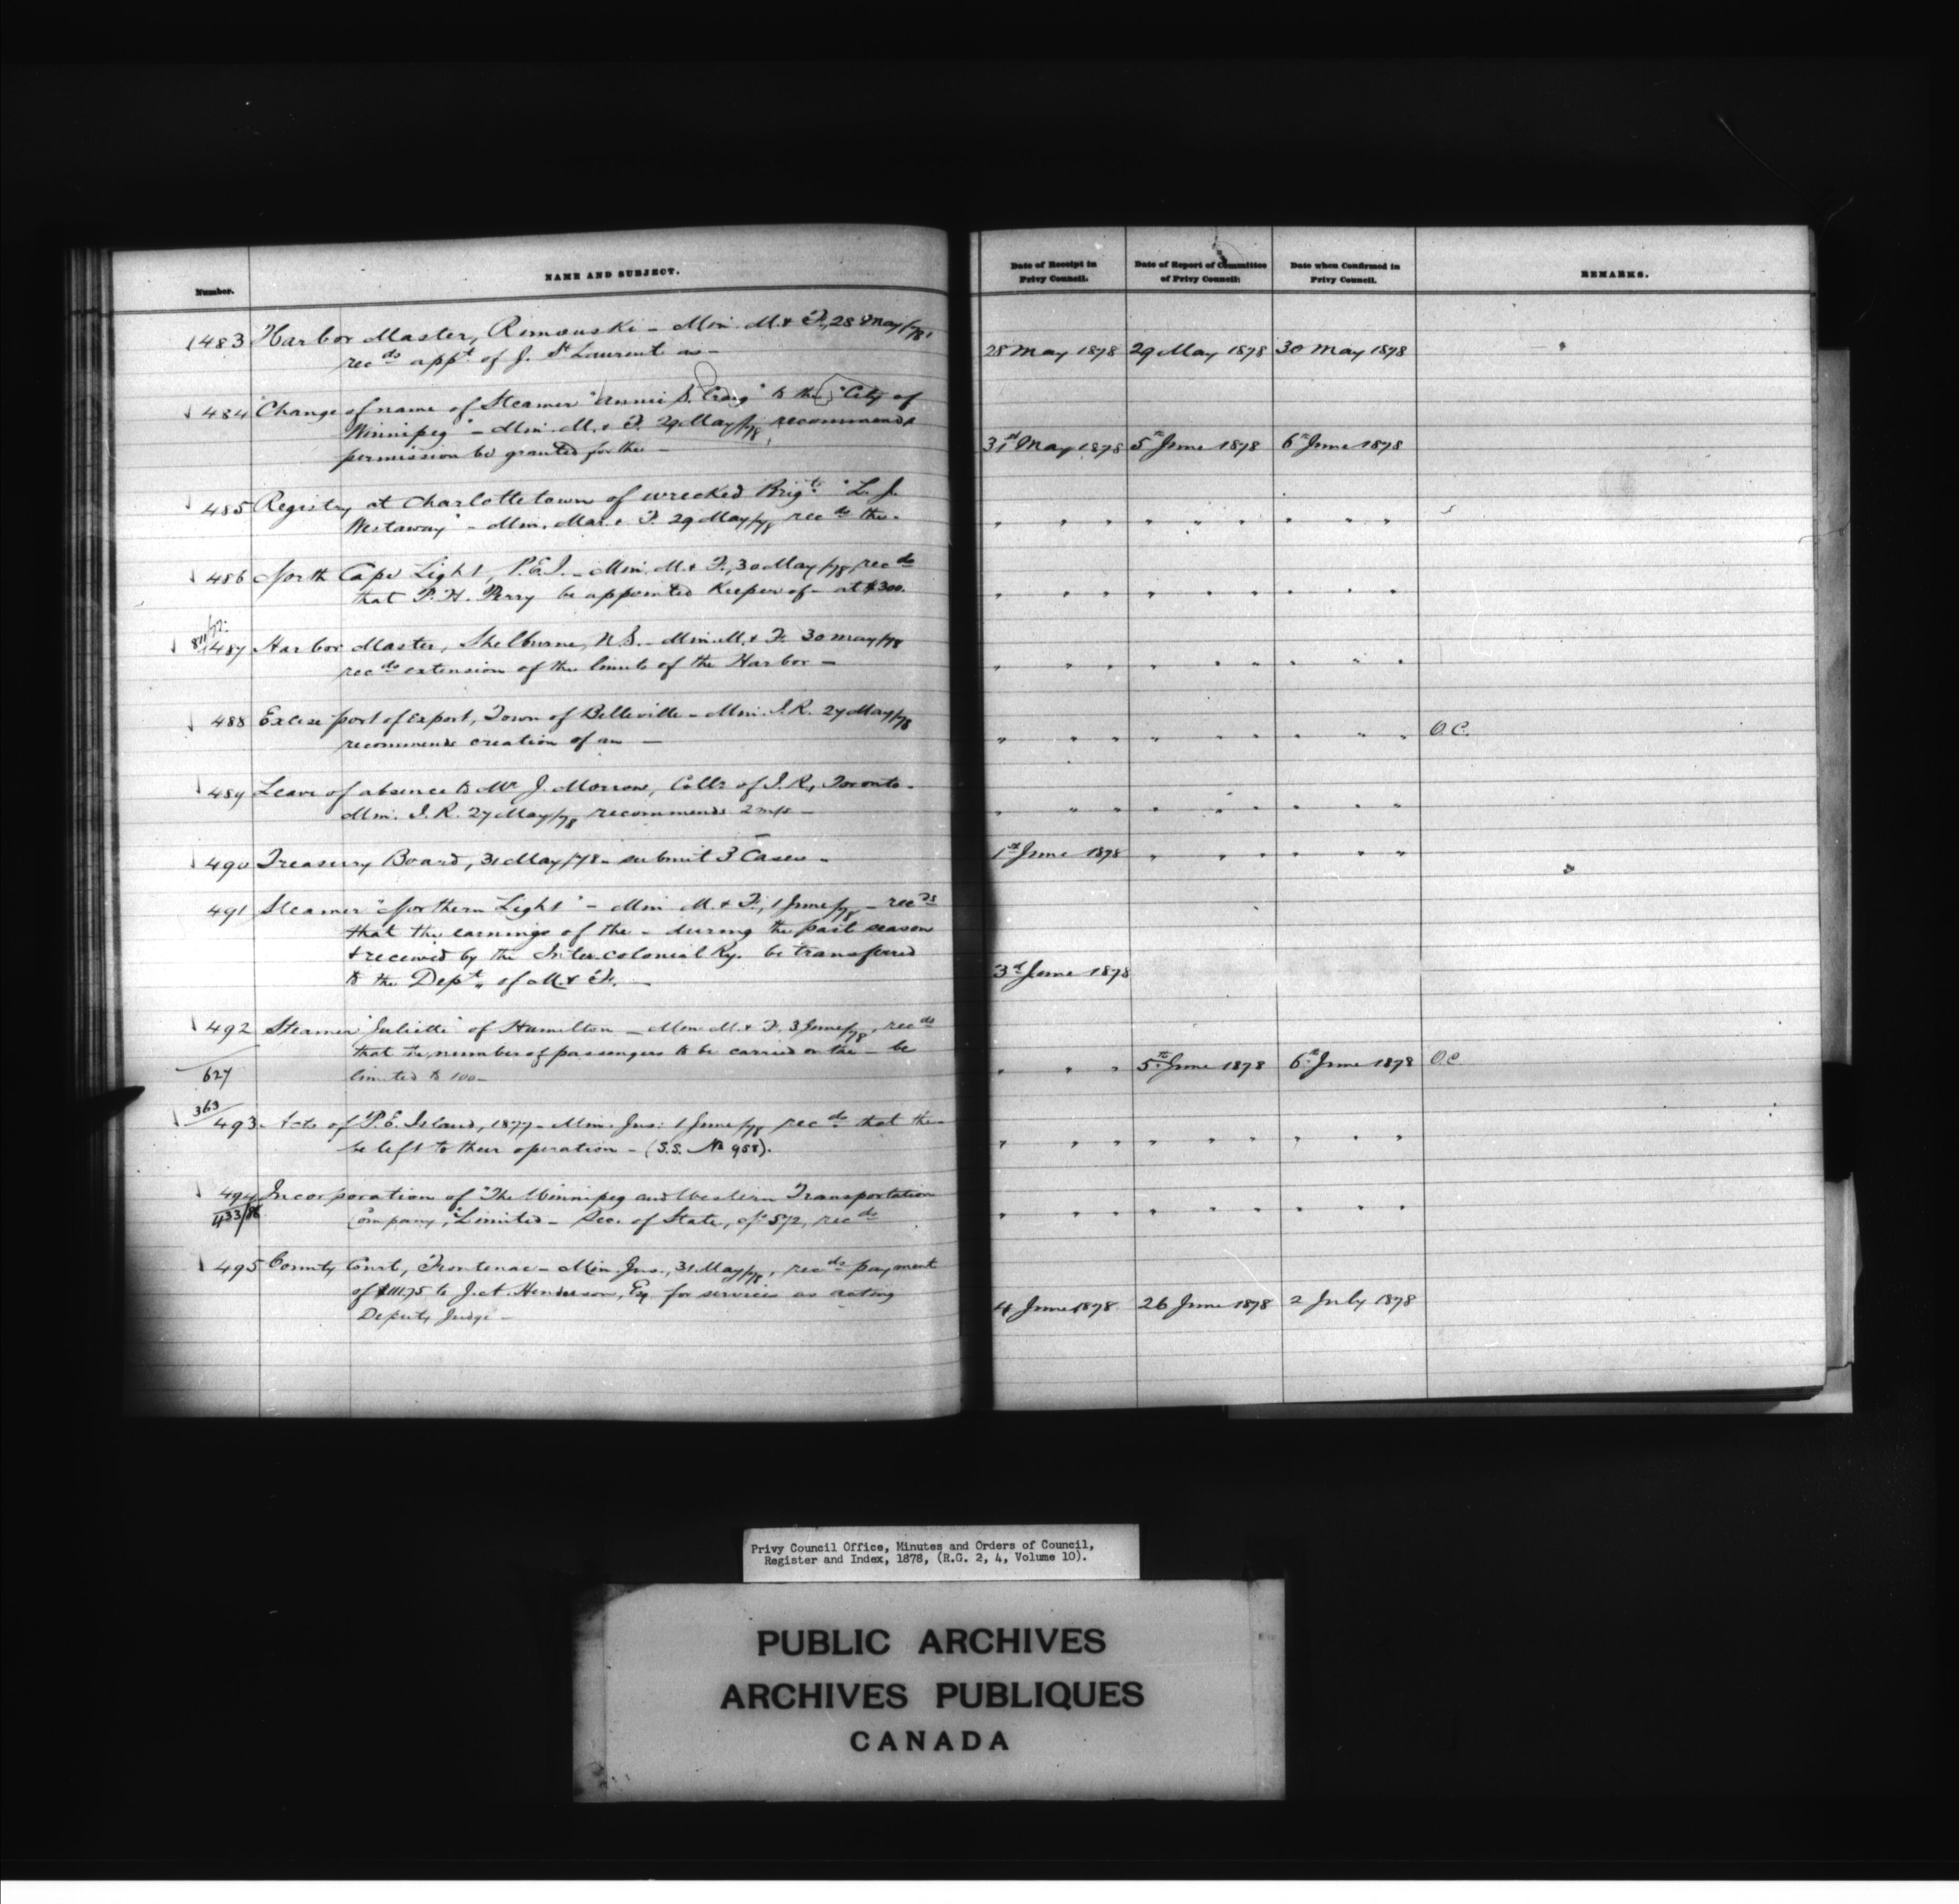 Number.
NAME AND SUBJECT.
Date of Receipt in
Privy Council.
Date of Report of Committee
of Privy Council:
Date when Confirmed in
Privy Council.
REMARKS.
1483 Harbor Master, Rimouski - Min. M. & F., 28 May/78,
recds appt of J. St Laurent as -
28 May 1878 29 May 1878 30 May 1878
484 Change of name of Steamer "Annie S. Craig" to the "City of
Winnipeg" - Min. M. & F. 29 May/78, recommends
permission be granted for the -
31st May 1878 5th June 1878 6th June 1878
485 Registry at Charlottetown of wrecked Brigt. "L. J.
Westaway" - Min. Mar. & F. 29 May/78 recds the -
" " " " " " " " "
486 North Cape Light, P.E.I. - Min. M. & F., 30 May/78, recds
that P. H. Perry be appointed Keeper of - at $300.
" " " " " " " " "
487 Harbor Master, Shelburne, N.S. - Min. M. & F. 30 May/78
recds extension of the limits of the Harbor -
" " " " " " " " "
488 Excise port of export, Town of Belleville - Min. I.R. 27 May/78
recommends creation of an -
" " " " " " " " " O.C.
489 Leave of absence to Mr J. Morrow, Collr of I.R, Toronto -
Min. I.R. 27 May/78 recommends 2 mos -
" " " " " " " " "
490 Treasury Board, 31 May/78 - submit 3 Cases -
1st June 1878 " " " " " "
491 Steamer "Northern Light" - Min M. & F., 1 June/78 - recds
that the earnings of the - during the past season
& received by the Intercolonial Ry. be transferred
to the Dept. of M. & F. -
3d June 1878
492 Steamer "Juliette" of Hamilton - Min. M. & F. 3 June/78, recds
that the number of passengers to be carried on the - be
627 limited to 100 -
" " " 5th June 1878 6th June 1878 O.C.
363
493 Acts of P.E. Island, 1877 - Min. Jus: 1 June/78 recds that the -
be left to their operation - (S.S. No 958).
" " " " " " " " "
494 Incorporation of "The Winnipeg and Western Transportation
433/86 Company," Limited - Sec. of State, of 572, recds
" " " " " " " " "
495 County Court, Frontenac - Min. Jus., 31 May/78, recds payment
of $111.75 to J. A. Henderson, Esq. for services as acting
Deputy Judge -
4 June 1878 26 June 1878 2 July 1878
Privy Council Office, Minutes and Orders of Council,
Register and Index, 1878, (R.G. 2, 4, Volume 10).
PUBLIC ARCHIVES
ARCHIVES PUBLIQUES
CANADA